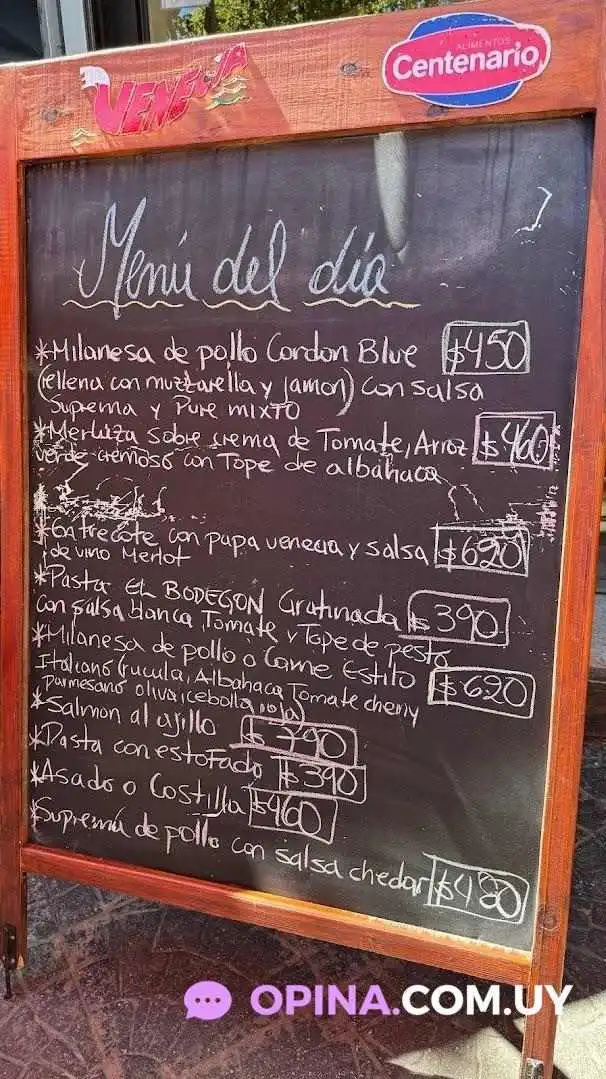 VENEWA
ALIMENTOS
Centenario
Menú del día
*Milanesa de pollo Cordon Blue $450
(rellena con muzzarella y jamon) con salsa
Suprema y Pure mixto
*Merluza sobre crema de Tomate, Arroz $460
verde cremoso con Tope de albahaca
*Entrecote con papa venecia y salsa $620
de vino Merlot
*Pasta EL BODEGON Gratinada $390
con salsa blanca Tomate y Tope de pesto
*Milanesa de pollo o Carne Estilo $620
Italiano (rucula, Albahaca Tomate cherry
parmesano oliva, cebolla roja)
*Salmon al ajillo $790
*Pasta con estofado $390
*Asado o Costilla $460
*Suprema de pollo con salsa chedar $480
OPINA.COM.UY